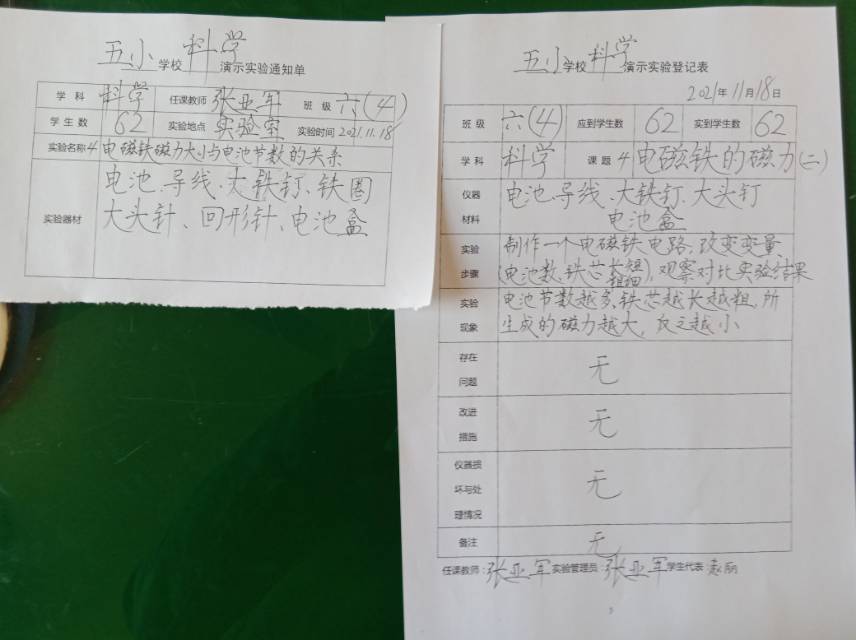 五小学校科学演示实验通知单
学科 科学 任课教师 张亚军 班级 六(4)
学生数 62 实验地点 实验室 实验时间 2021.11.18
实验名称 4 电磁铁磁力大小与电池节数的关系
电池、导线、大铁钉、铁圈
实验器材 大头针、回形针、电池盒
五小学校科学演示实验登记表
2021年11月18日
班级 六(4) 应到学生数 62 实到学生数 62
学科 科学 课题 4 电磁铁的磁力(二)
仪器 电池、导线、大铁钉、大头钉
材料 电池盒
实验 制作一个电磁铁电路,改变变量,
步骤 (电池数、铁芯长短粗细),观察对比实验结果
实验 电池节数越多,铁芯越长越粗,所
现象 生成的磁力越大,反之越小
存在
问题 无
改进
措施 无
仪器损
坏与处 无
理情况
备注 无
任课教师:张亚军 实验管理员:张亚军 学生代表:赵丽